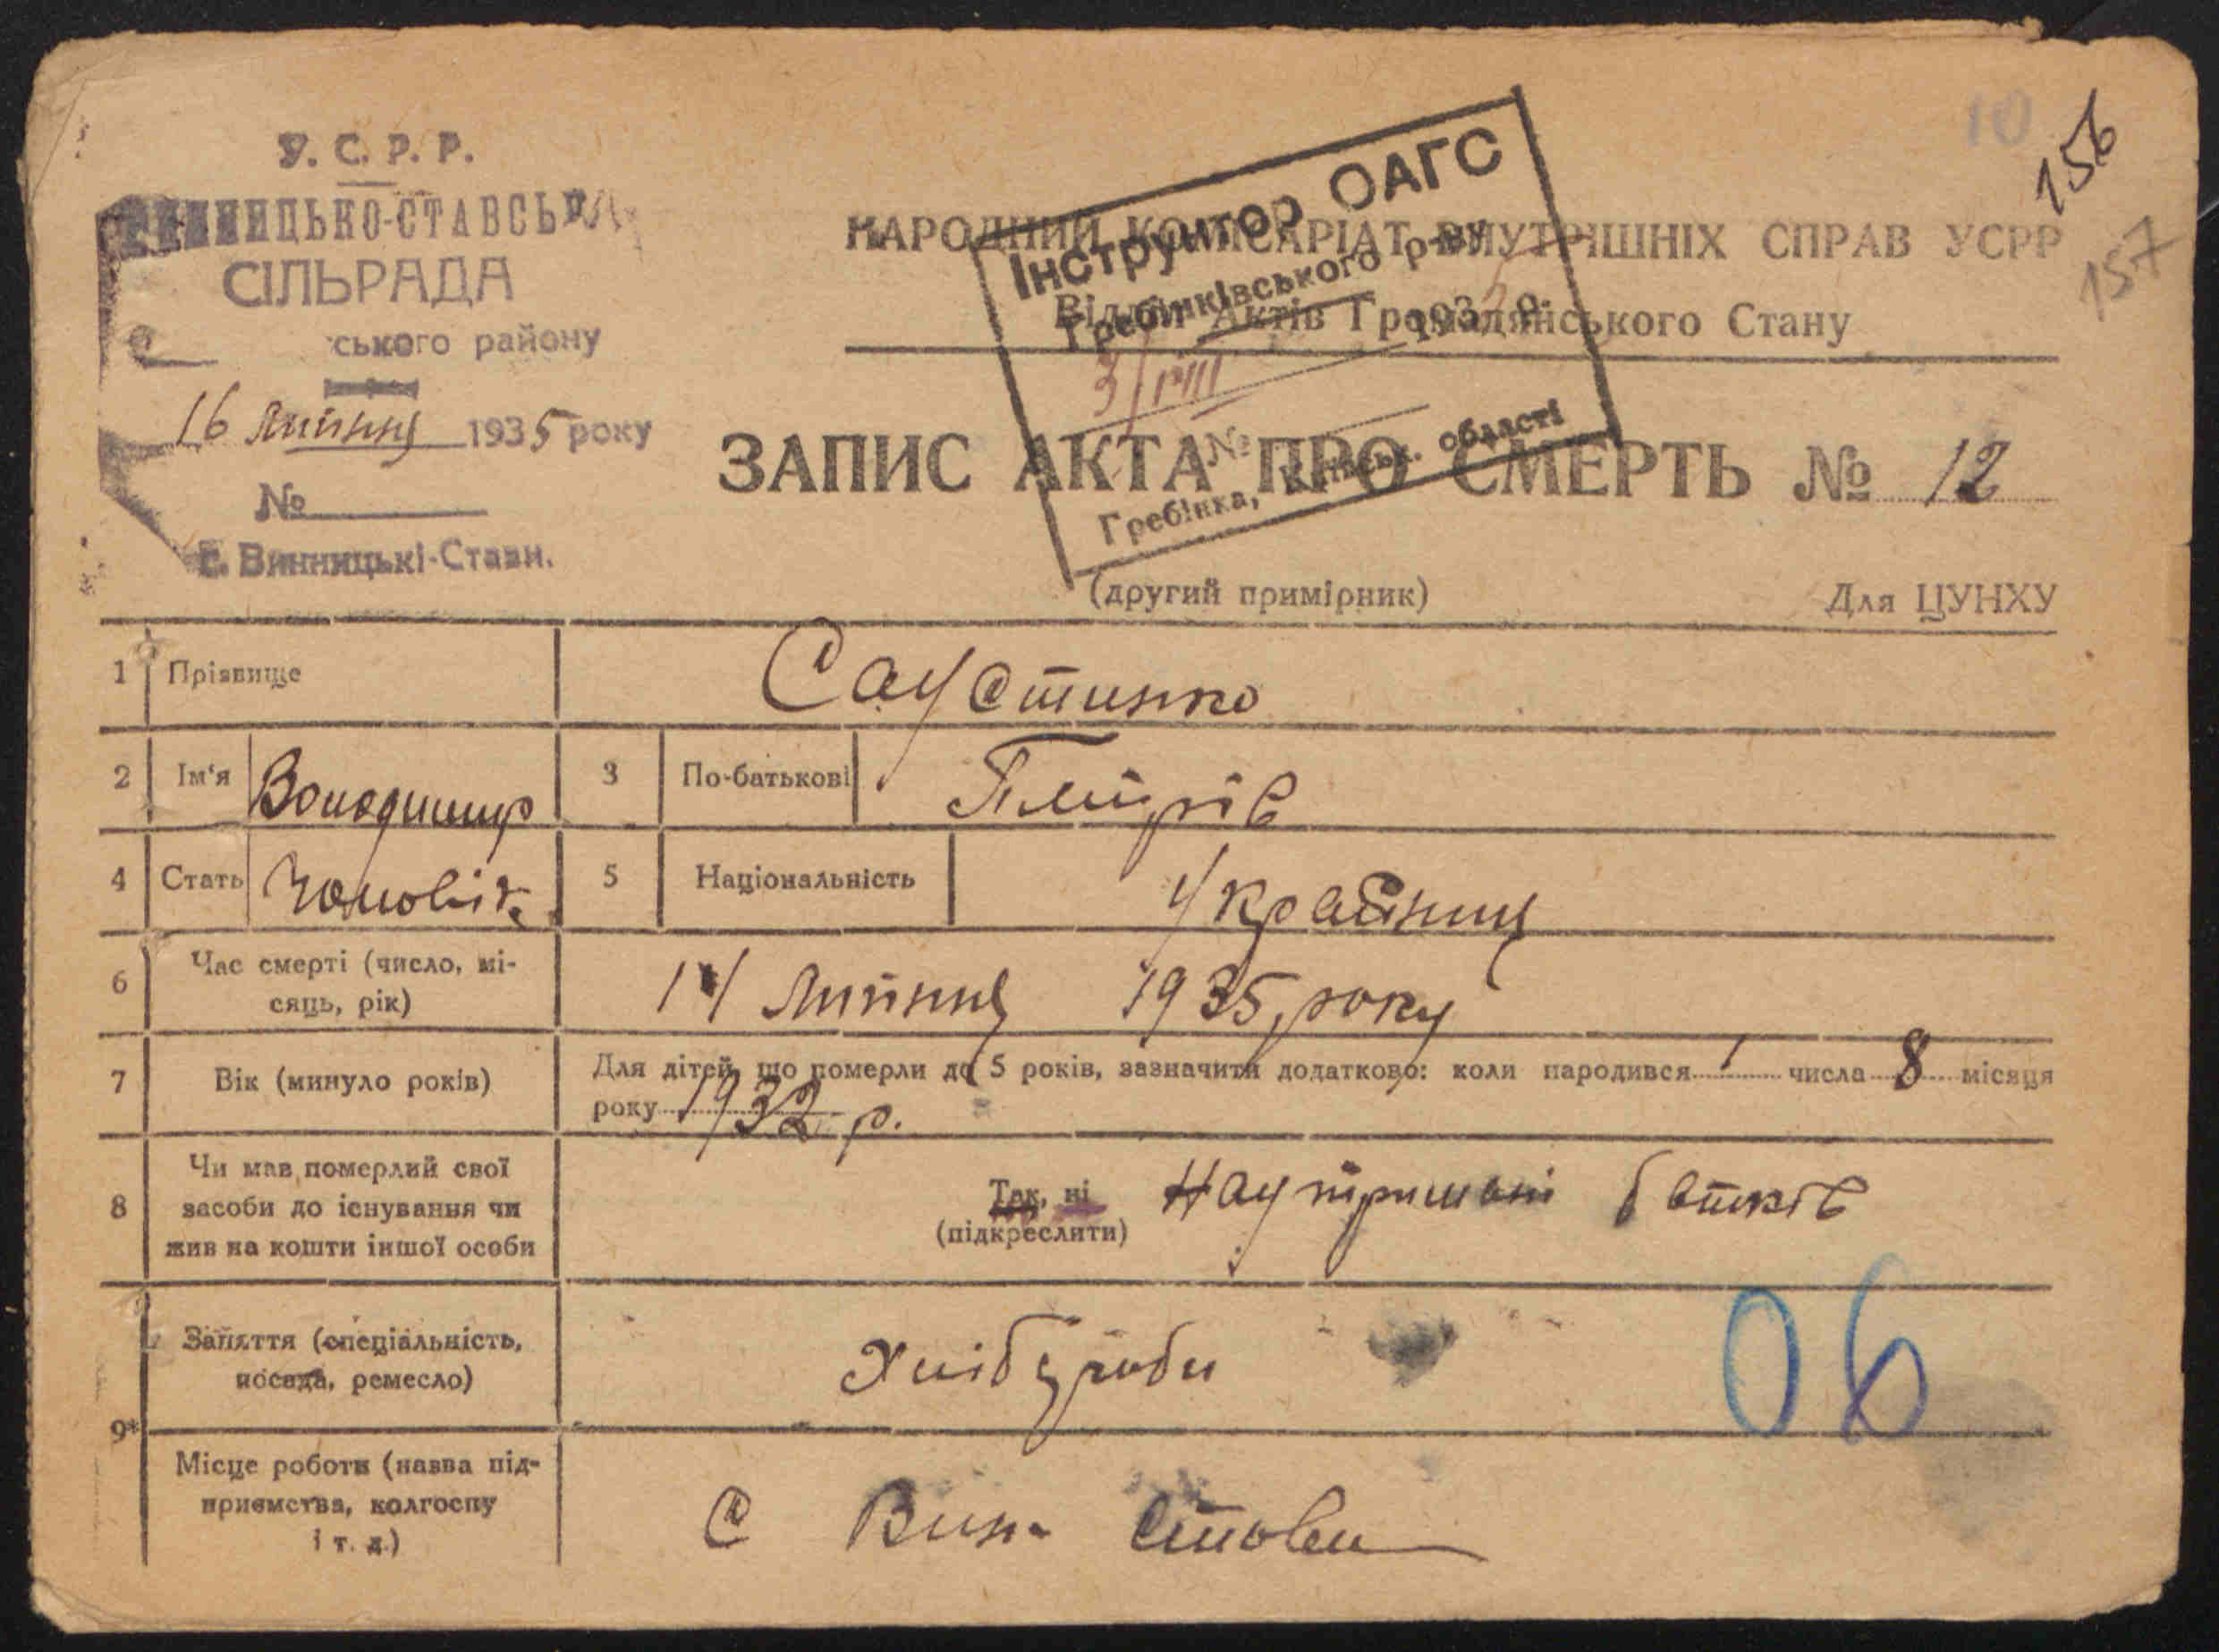 У. С. Р. Р.
ВИННИЦЬКО-СТАВСЬКА
СІЛЬРАДА
ського району
16 Липня 1935 року
№
с. Винницькі-Стави.
10
156
157
НАРОДНИЙ КОМІСАРІАТ ВНУТРІШНІХ СПРАВ УСРР
Відділ Актів Громадянського Стану
Інструктор ОАГС
Гребінківського р-ну
3/VIII 1935 р.
№
Гребінка, Київськ. області
ЗАПИС АКТА ПРО СМЕРТЬ № 12
(другий примірник)
Для ЦУНХУ
1 Прізвище Саустинко
2 Ім'я Володимир 3 По-батькові Пметрів
4 Стать Чоловік 5 Національність Україниц
6 Час смерті (число, мі-
сяць, рік) 14 Липня 1935 року
7 Вік (минуло років) Для дітей, що померли до 5 років, зазначити додатково: коли народився 1 числа 8 місяця
року 1932 р.
8 Чи мав померлий свої
засоби до існування чи
жив на кошти іншої особи
Так, ні
(підкреслити)
На утримані батків
9* Заняття (спеціальність,
посада, ремесло) Хлібуроби
06
Місце роботи (назва під-
приємства, колгоспу
і т. д.) С Вин. Стави